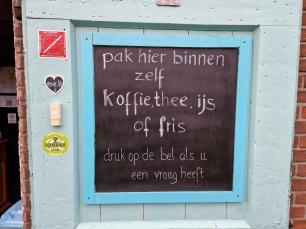 pak hier binnen
zelf
koffie, thee, ijs
of fris
druk op de bel als u
een vraag heeft